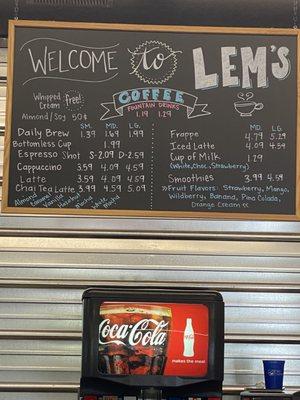 WELCOME to LEM's
Whipped Cream free!
Almond/Soy 50¢
COFFEE
FOUNTAIN DRINKS
1.19 1.29
SM. MD. LG.
Daily Brew 1.39 1.69 1.99
Bottomless Cup 1.99
Espresso Shot S-2.09 D-2.59
Cappuccino 3.59 4.09 4.59
Latte 3.59 4.09 4.59
Chai Tea Latte 3.99 4.59 5.09
Almond
Caramel
Vanilla
Hazelnut
Mocha
White Mocha
MD. LG.
Frappe 4.79 5.29
Iced Latte 4.09 4.59
Cup of Milk 1.29
(White, Choc., Strawberry)
Smoothies 3.99 4.59
»Fruit Flavors: Strawberry, Mango,
Wildberry, Banana, Pina Colada,
Orange Cream «
Coca-Cola
makes the meal